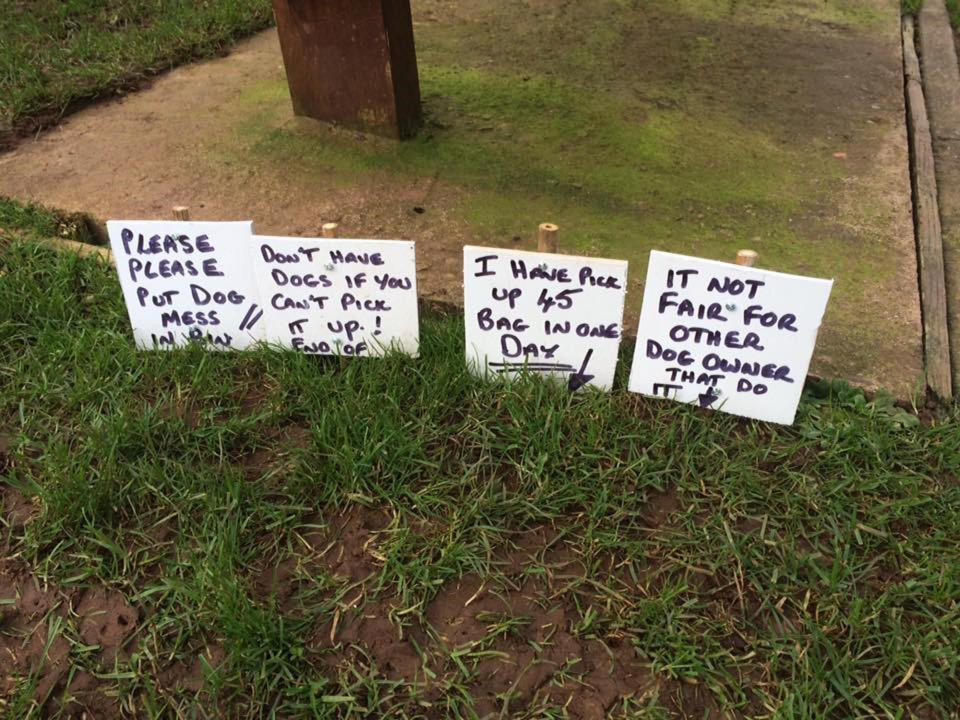 PLEASE
PLEASE
PUT DOG
MESS
IN BIN
DON'T HAVE
DOGS IF YOU
CAN'T PICK
IT UP.!
END OF
I HAVE PICK
UP 45
BAG IN ONE
DAY
IT NOT
FAIR FOR
OTHER
DOG OWNER
THAT DO
IT